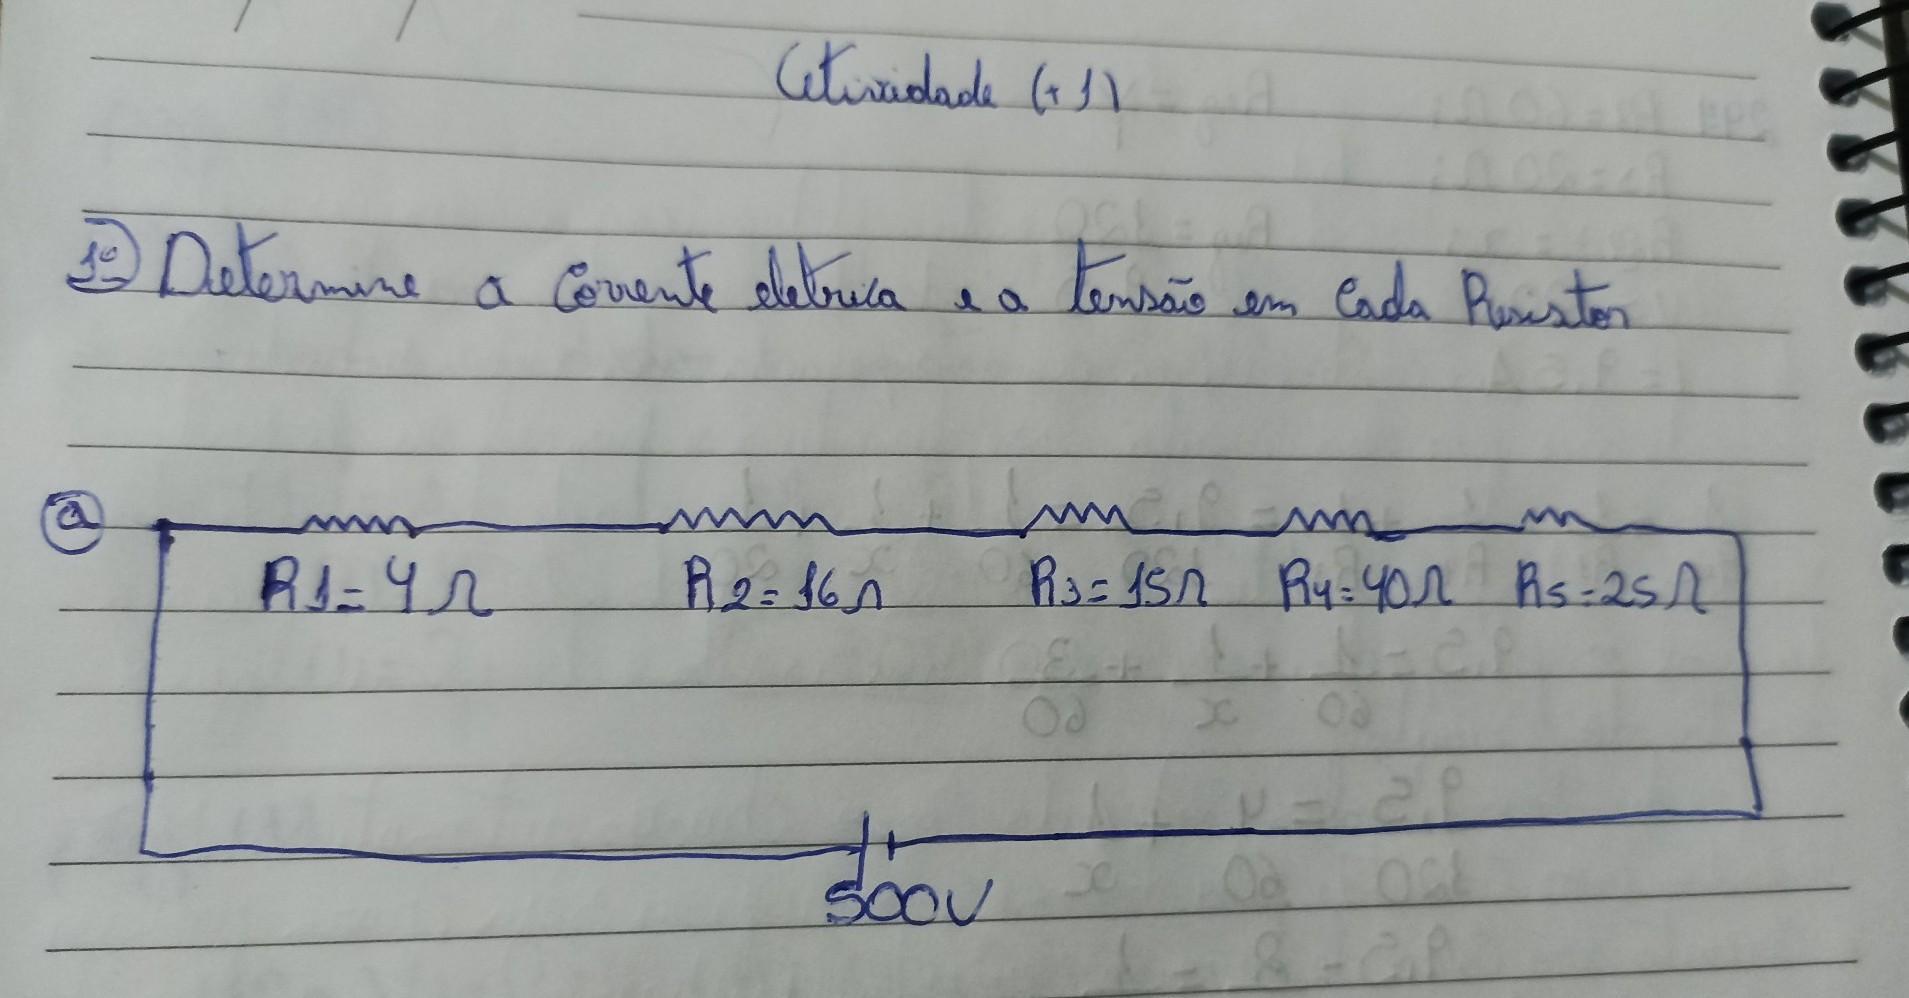 Atividade (+1)
1º) Determine a Corrente eletrica e a tensão em Cada Resistor
a
R1=4Ω R2=16Ω R3=15Ω R4=40Ω R5=25Ω
500V